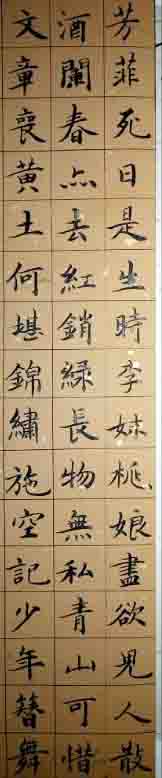 芳菲死日是生時李妹桃娘盡欲兒人散
酒闌春亦去紅銷綠長物無私青山可惜
文章喪黃土何堪錦繡施空記少年簪舞